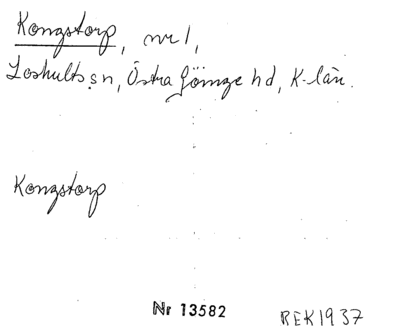 Kongstorp, nr 1,
Loshults sn, Östra Göinge hd, K-län.
Kongstorp
Nr 13582
REK 1937